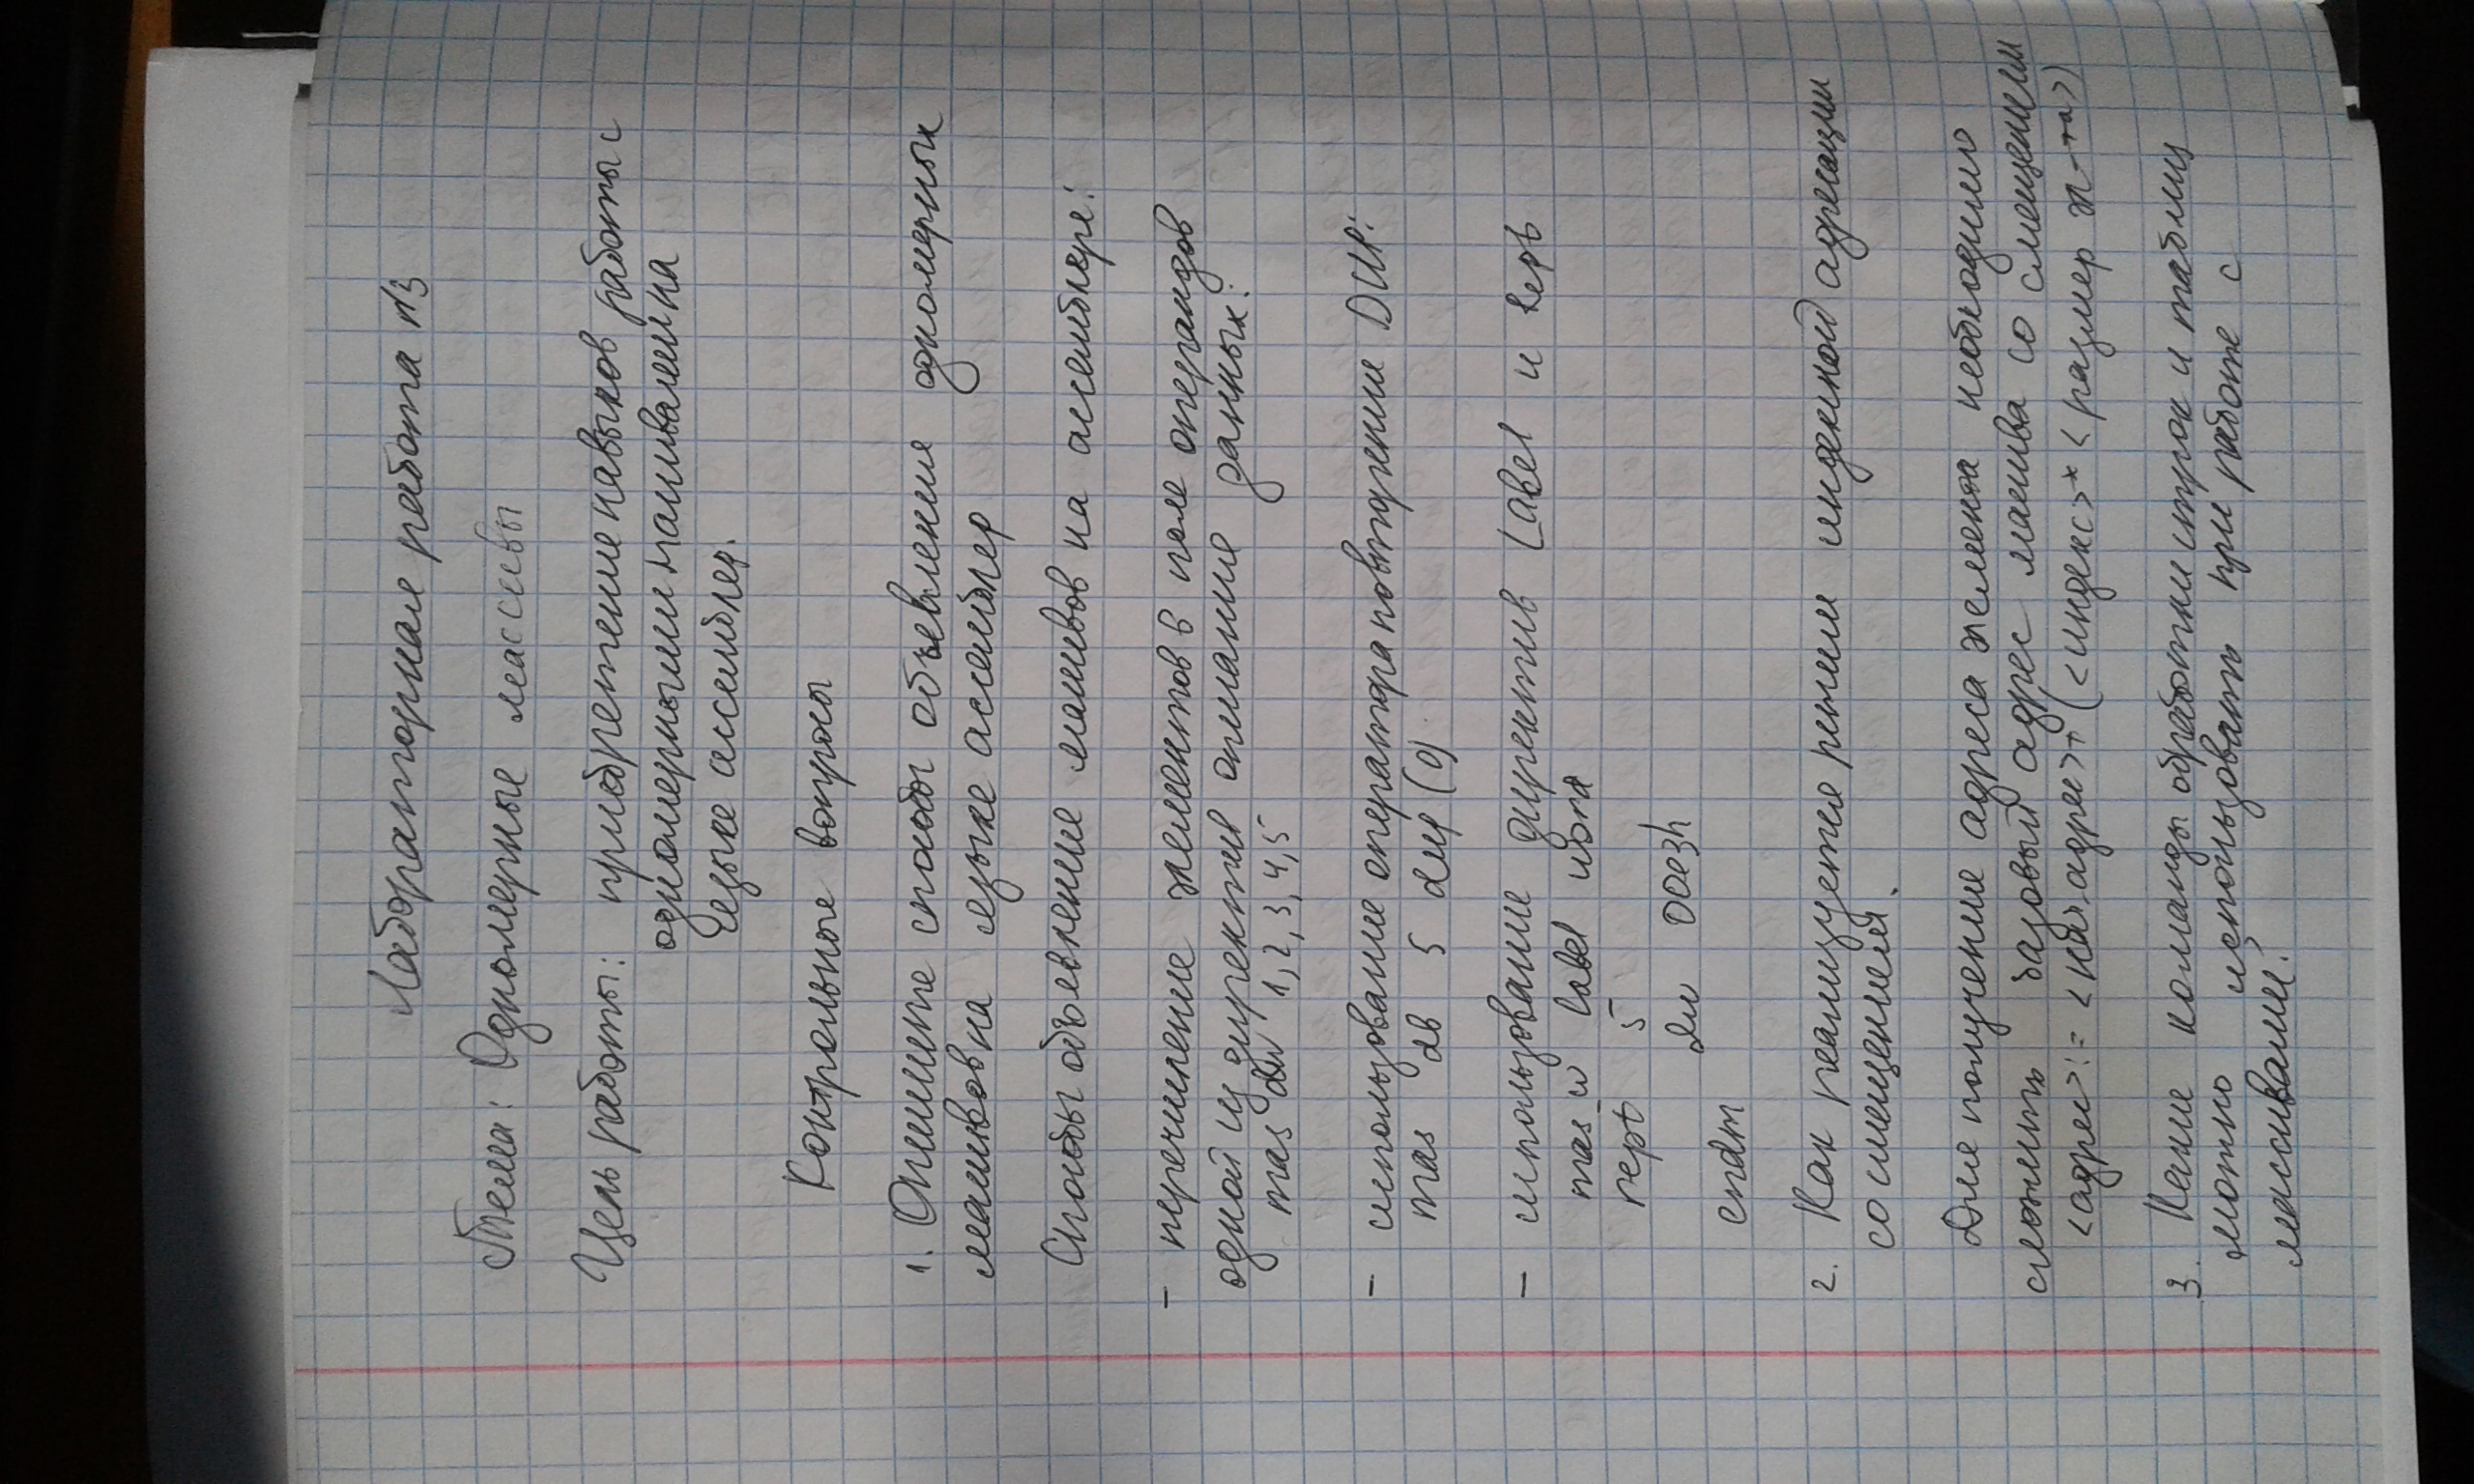 Лабораторная работа №3
Тема: Одномерные массивы
Цель работы: приобретение навыков работы с
одномерными массивами на
языке ассемблер.
Контрольные вопросы
1. Опишите способы объявления одномерных
массивов на языке ассемблер
Способы объявления массивов на ассемблере:
- перечисление элементов в поле операндов
одной из директив описания данных:
mas dw 1, 2, 3, 4, 5
- использование оператора повторения DUP:
mas db 5 dup (0)
- использование директив Label и
mas_w label word
rept 5
dw 00e3h
endm
2. Как реализуется режим индексной адресации
со смещением.
Для получения адреса элемента необходимо
сложить базовый адрес массива со смещением
<адрес> := <нач. адрес> + (<индекс> * <размер эл-та>)
3. Какие команды обработки строк и таблиц
можно использовать при работе с
массивами?